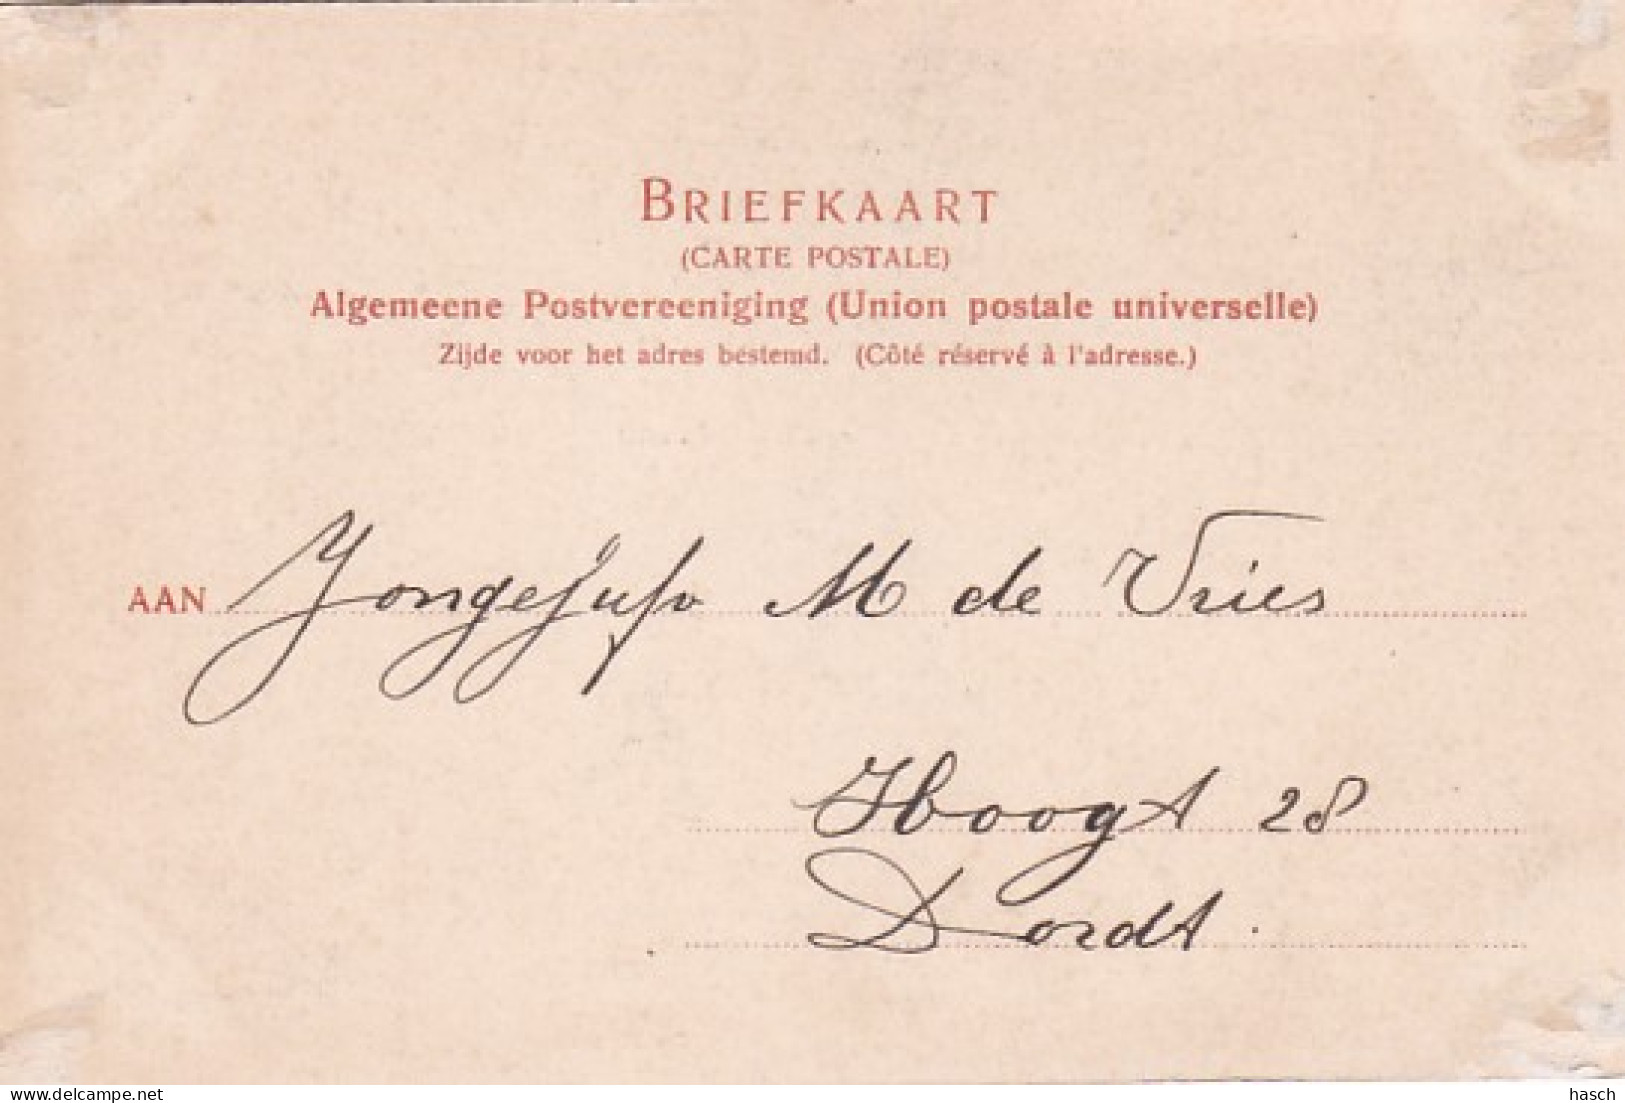 BRIEFKAART
(CARTE POSTALE)
Algemeene Postvereeniging (Union postale universelle)
Zijde voor het adres bestemd. (Côté réservé à l'adresse.)
AAN Jongejufr M de Vries
Hoogt 28
Dordt.
delcampe.net
hasch